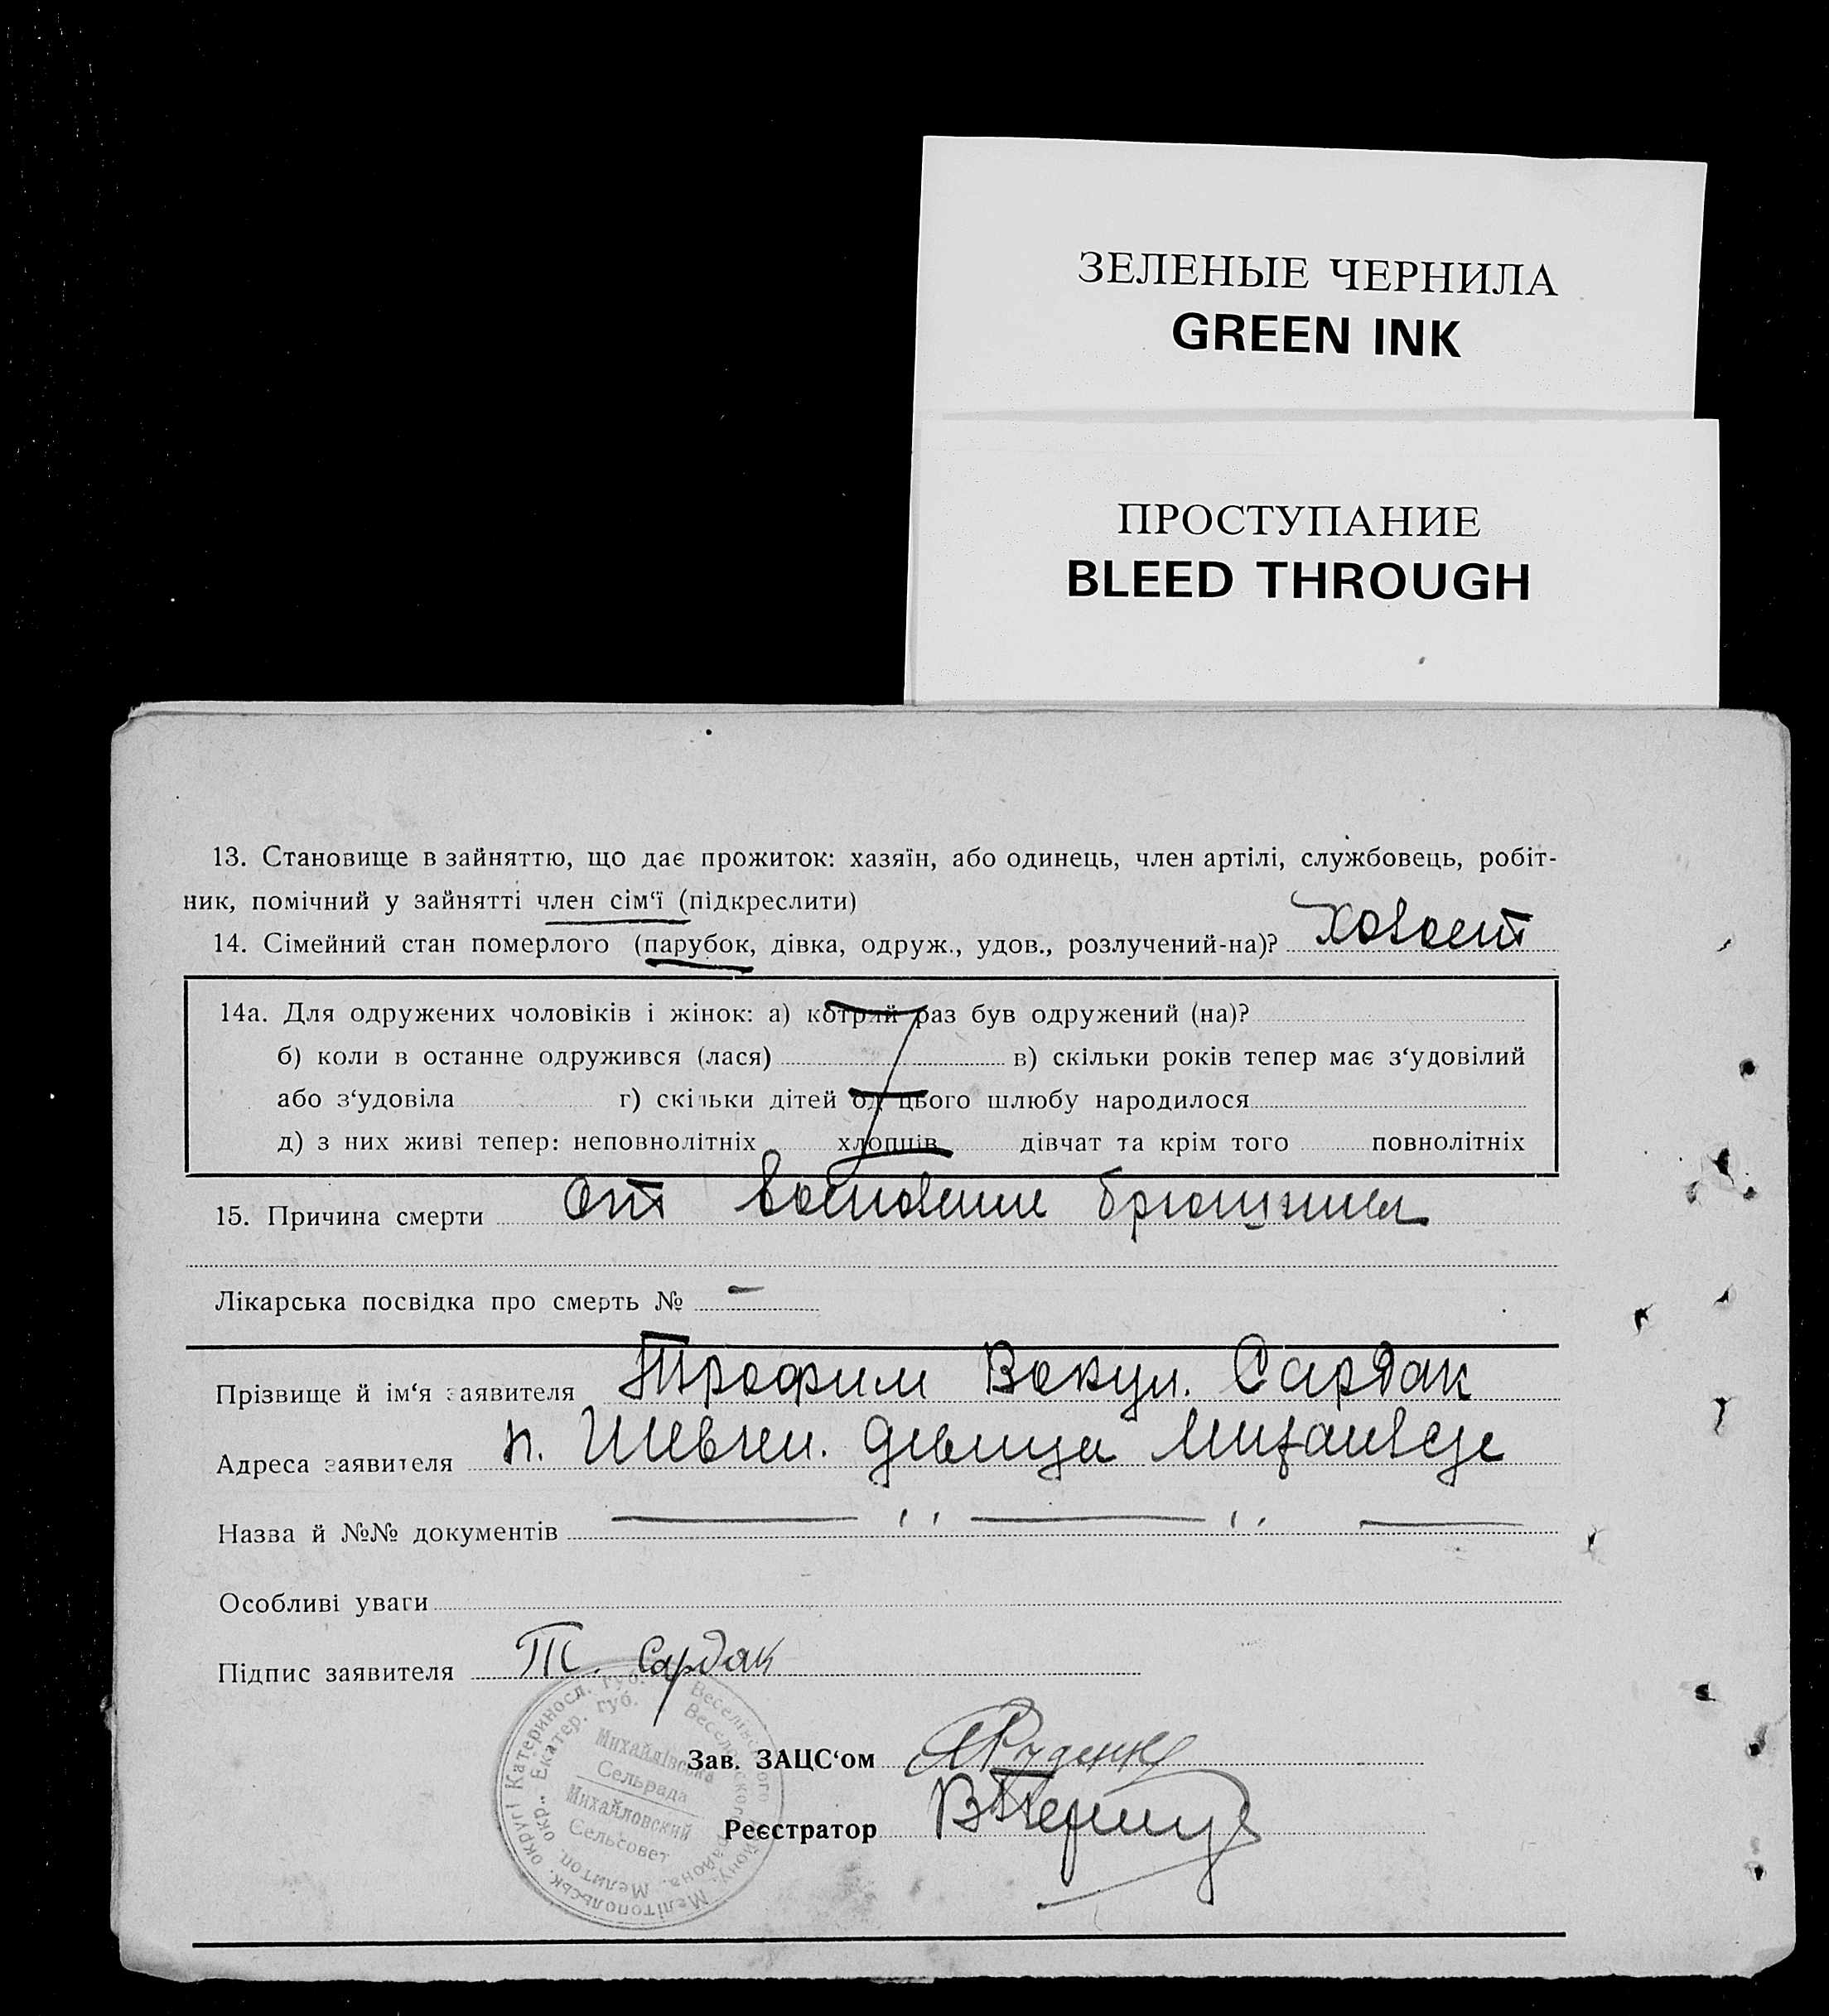 ЗЕЛЕНЫЕ ЧЕРНИЛА
GREEN INK
ПРОСТУПАНИЕ
BLEED THROUGH
13. Становище в зайняттю, що дає прожиток: хазяїн, або одинець, член артілі, службовець, робіт-
ник, помічний у зайнятті член сім‘ї (підкреслити)
14. Сімейний стан померлого (парубок, дівка, одруж., удов., розлучений-на)? холост
14а. Для одружених чоловіків і жінок: а) котрий раз був одружений (на)?
б) коли в останне одружився (лася) в) скільки років тепер має з‘удовілий
або з‘удовіла г) скільки дітей од цього шлюбу народилося
д) з них живі тепер: неповнолітніх хлопців дівчат та крім того повнолітніх
15. Причина смерти от брюшини
Лікарська посвідка про смерть № —
Прізвище й ім‘я заявителя Трофим Вакул. Сардак
Адреса заявителя п. Шевчен.
Назва й №№ документів
Особливі уваги
Підпис заявителя Т. Сардак
Катеринославськ. губ.
Михайлівська
Сельрада
Михайловский
Сельсовет
Зав. ЗАЦС‘ом
Реєстратор